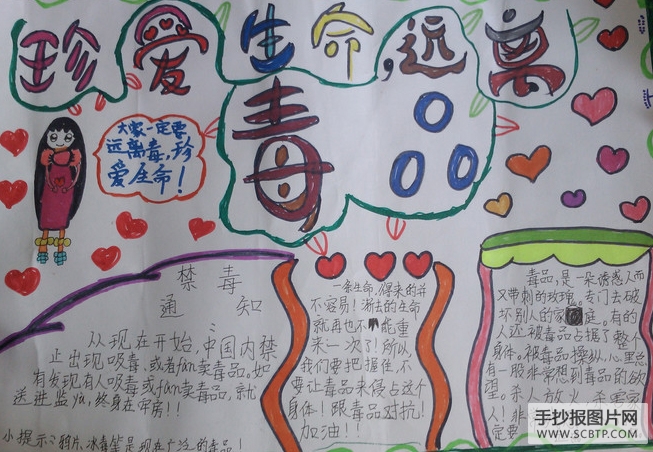 珍爱生命,远离
毒品
大家一定要
远离毒品,珍
爱生命!
禁毒
通知
从现在开始,中国内禁
止出现吸毒,或者fan卖毒品。如
有发现有人吸毒或fan卖毒品,就
送进监yu,终身在牢房!!
小提示:鸦片、冰毒笔是现在广泛的毒品!
一条生命,得来的并
不容易!逝去的生命
就再也不能重
来一次了!所以,
我们要把握住,不
要让毒品来侵占这个
身体!跟毒品对抗!
加油!!
毒品,是一朵诱惑人而
又带刺的玫瑰。专门去破
坏别人的家庭。有的
人还被毒品占据了整个
身体。被毒品操纵,心里总
有一股非常想到毒品的欲
望。杀人放火
人!非
定要
手抄报图片网
WWW.SCBTP.COM